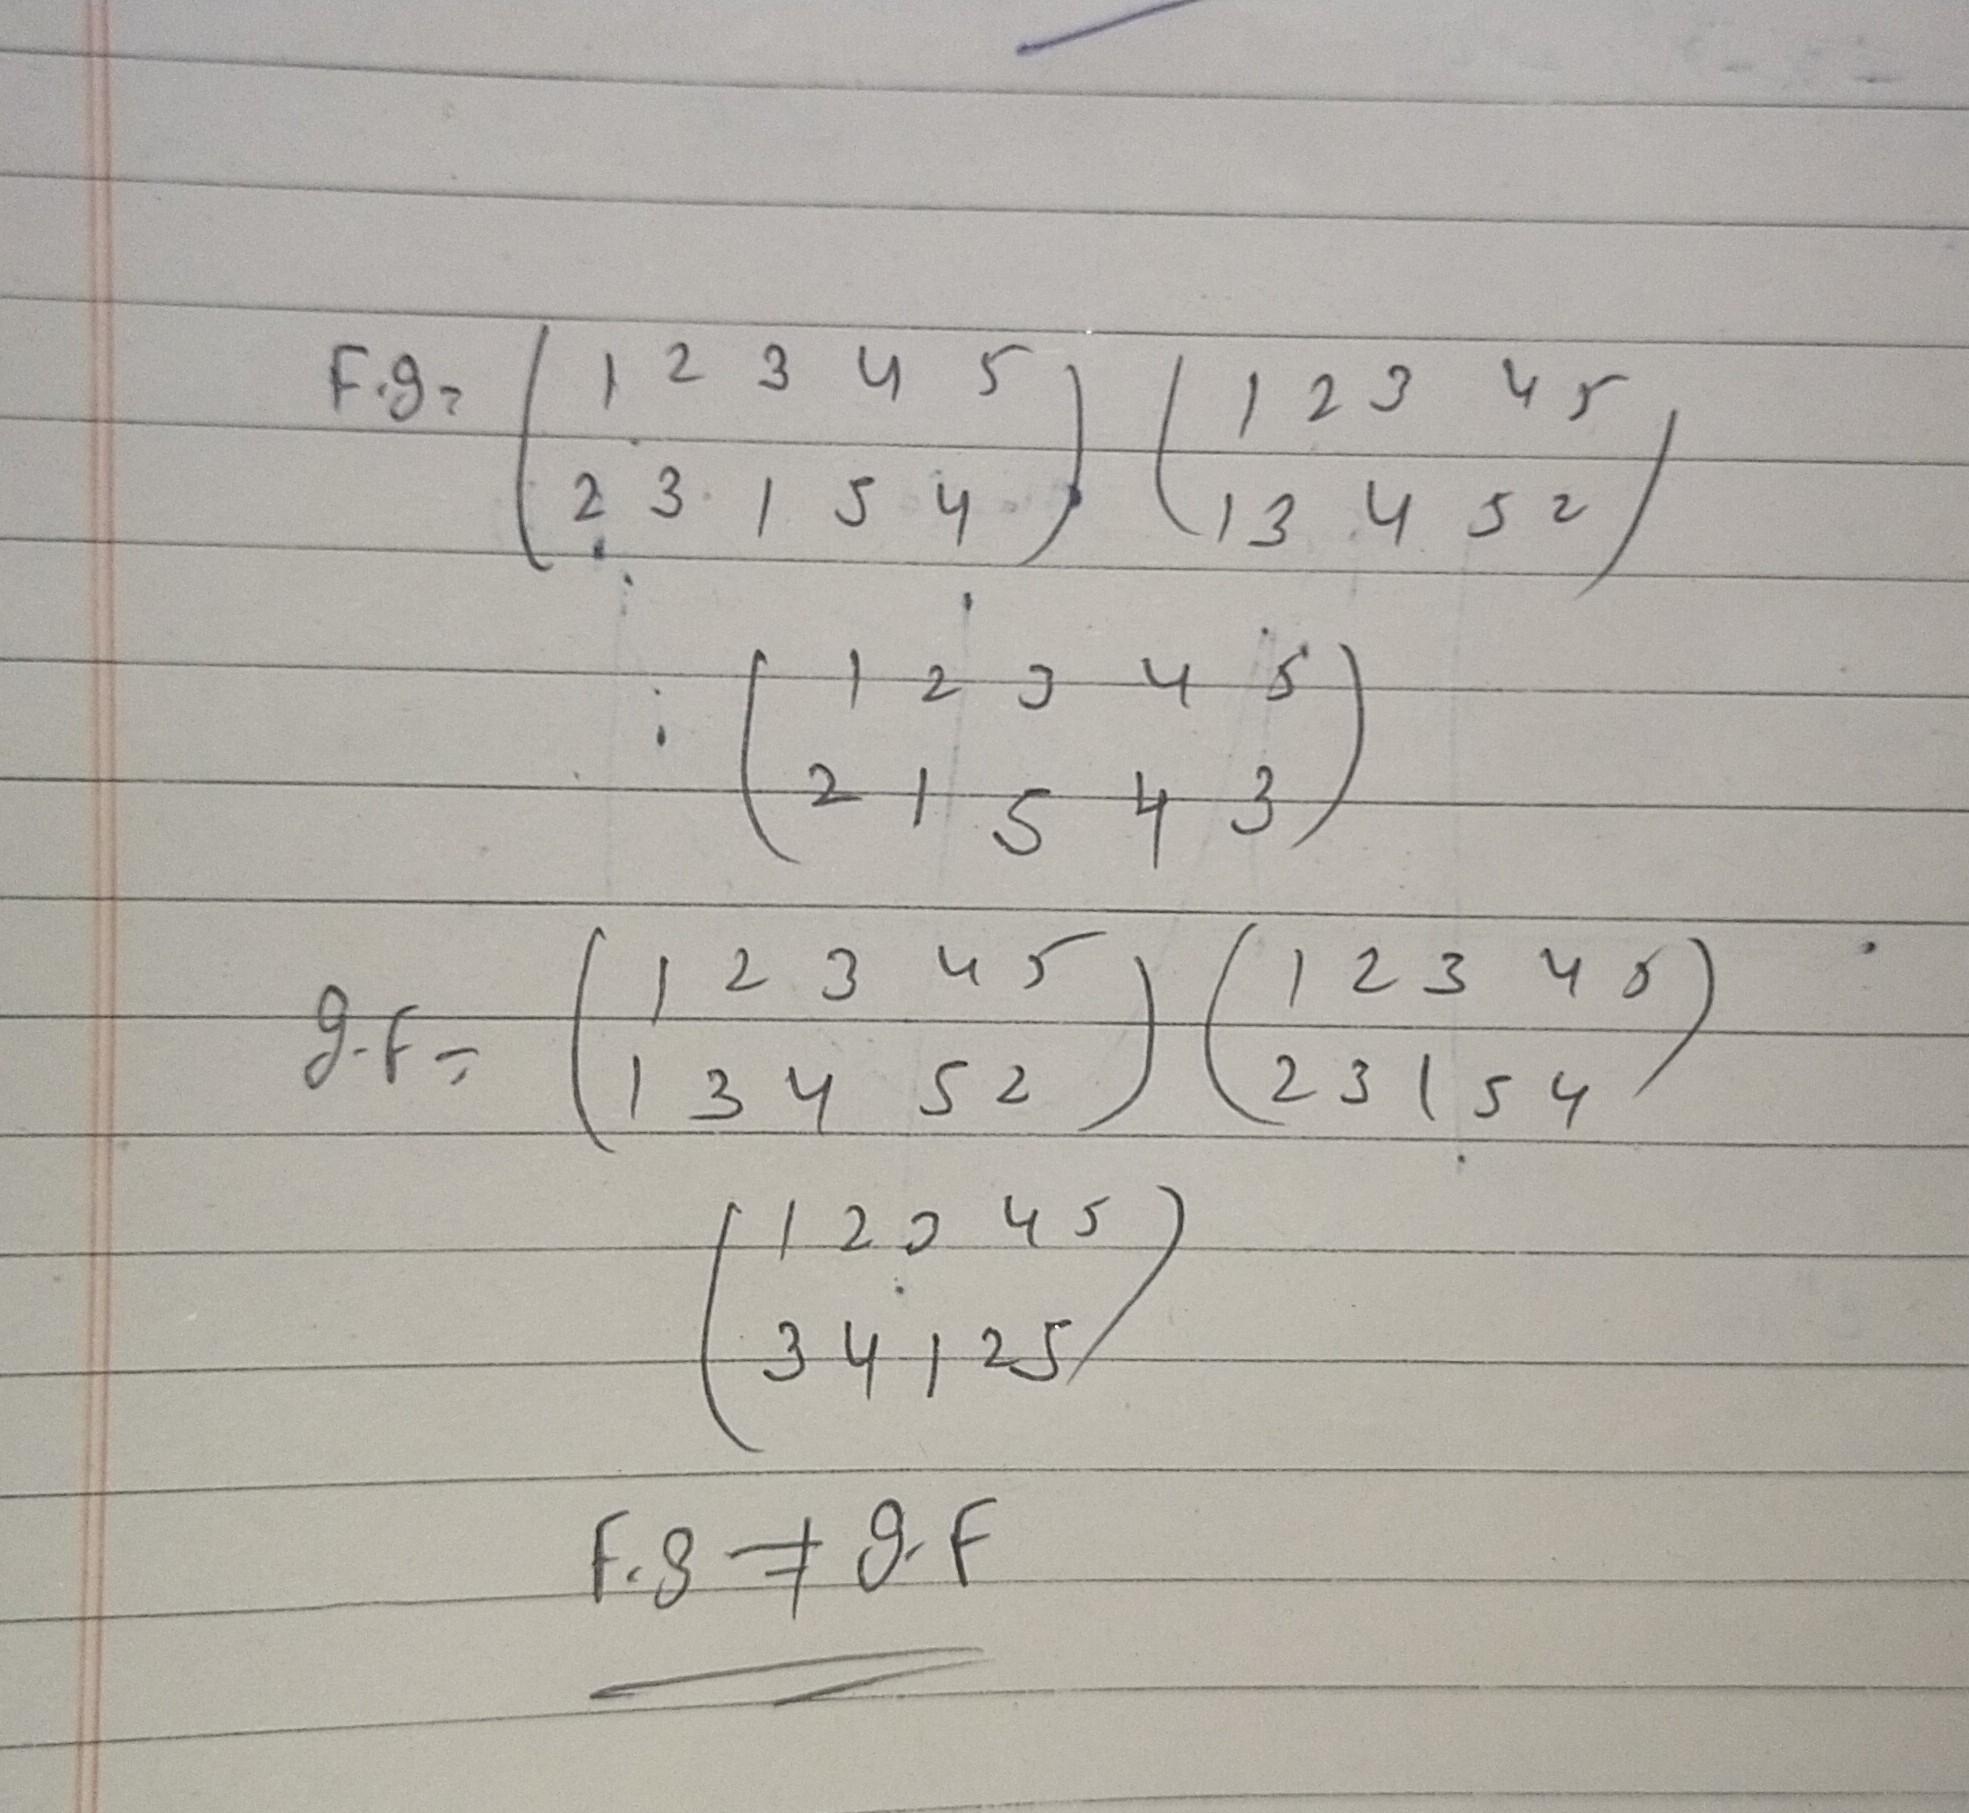 F.g= ( 1 2 3 4 5 ) ( 1 2 3 4 5 )
( 2 3 1 5 4 ) ( 1 3 4 5 2 )
( 1 2 3 4 5 )
( 2 1 5 4 3 )
g.f= ( 1 2 3 4 5 ) ( 1 2 3 4 5 )
( 1 3 4 5 2 ) ( 2 3 1 5 4 )
( 1 2 3 4 5 )
( 3 4 1 2 5 )
F.g ≠ g.F